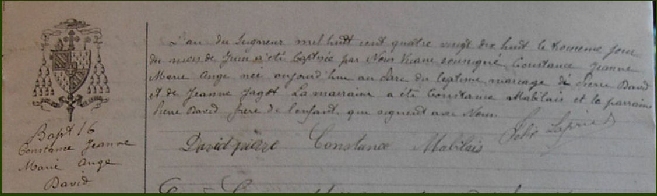 L'an du Seigneur mil huit cent quatre vingt dix huit le troisieme jour
du mois de Juin a été baptisée par Nous Vicaire soussigné Constance Jeanne
Marie Ange née aujourd'hui au du legitime mariage de Pierre David
et de Jeanne Jagot La marraine a été Constance Mabilais et le parrain
Pierre David frère de l'enfant qui signent avec Nous
David pierre Constance Mabilais
Bapt 16
Constance Jeanne
Marie Ange
David